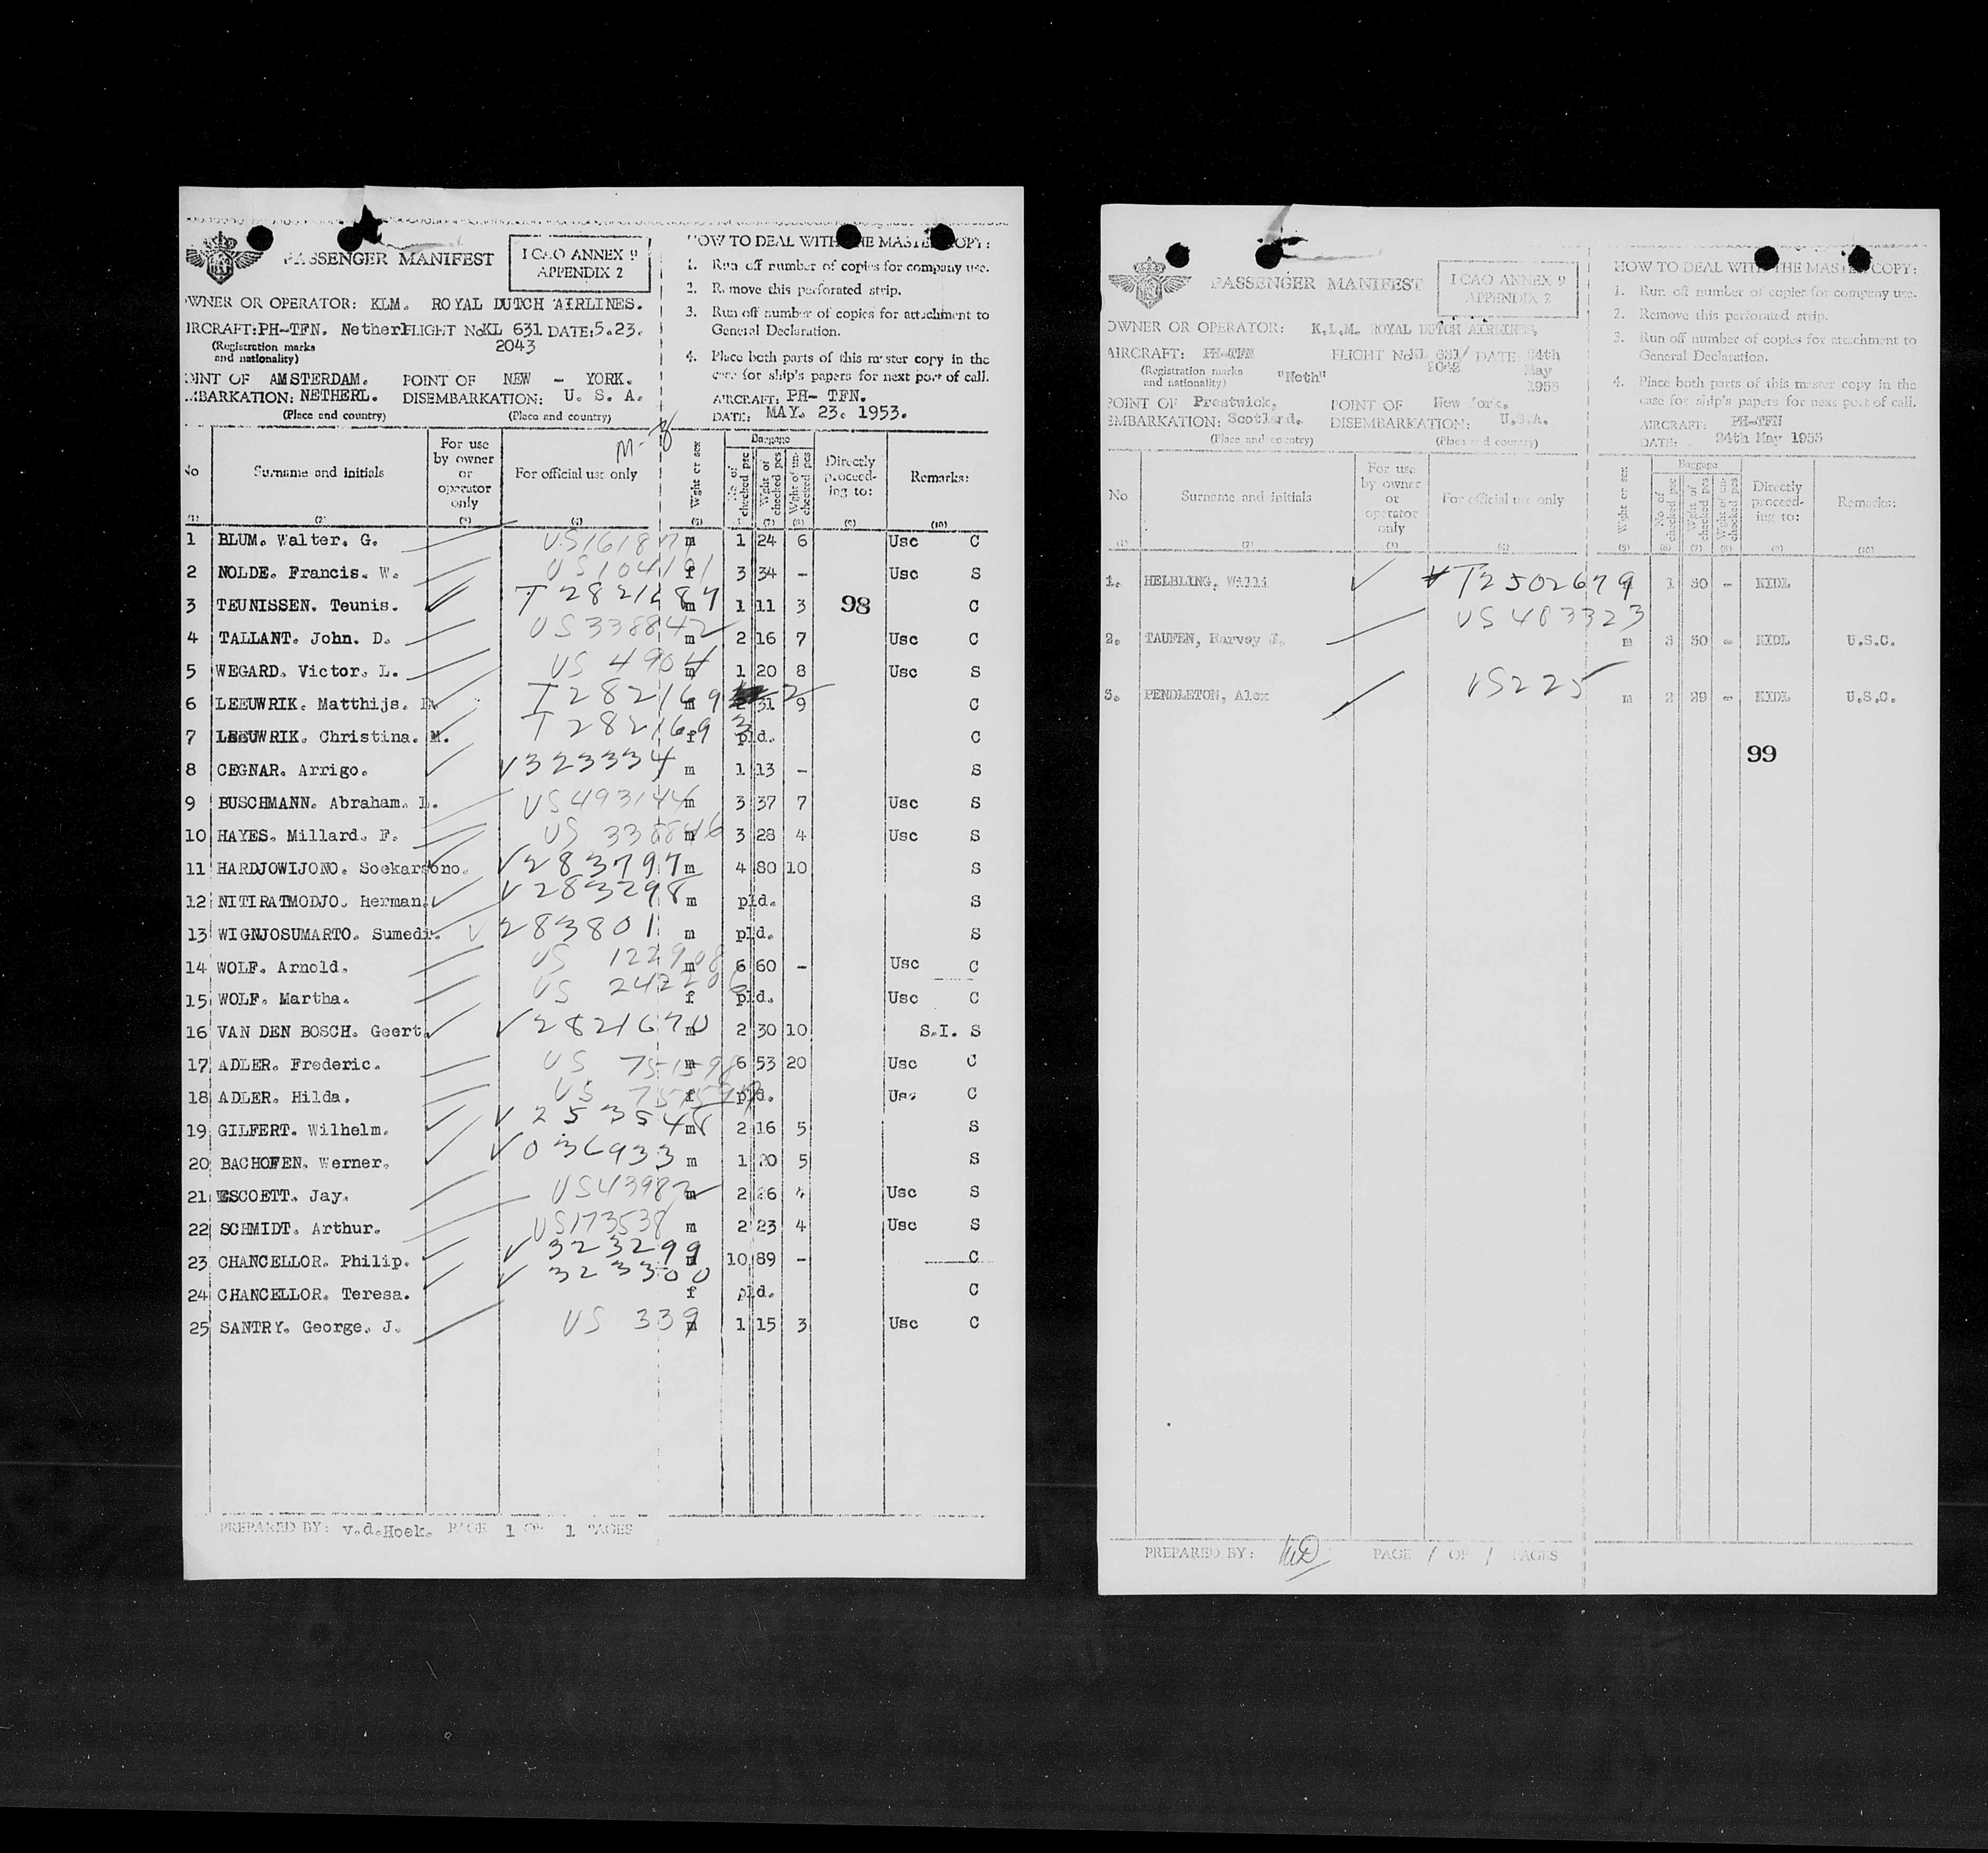 PASSENGER MANIFEST
I CAO ANNEX 9
APPENDIX 2
OWNER OR OPERATOR: KLM. ROYAL DUTCH AIRLINES.
IRCRAFT: PH-TFN. Netherl FLIGHT No KL 631 DATE: 5.23.
(Registration marks and nationality)
2043
OINT OF AMSTERDAM. POINT OF NEW - YORK.
MBARKATION: NETHERL. DISEMBARKATION: U. S. A.
(Place and country) (Place and country)
HOW TO DEAL WITH THE MASTER COPY:
1. Run off number of copies for company use.
2. Remove this perforated strip.
3. Run off number of copies for attachment to
General Declaration.
4. Place both parts of this master copy in the
case for ship's papers for next port of call.
AIRCRAFT: PH- TFN.
DATE: MAY. 23. 1953.
No Surname and initials For use by owner or operator only For official use only Wght or sex Baggage No of checked pcs Wght of checked pcs Wght of unchecked pcs Directly proceeding to: Remarks:
(1) (2) (3) (4) (5) (7) (8) (9) (10)
1 BLUM. Walter. G. m 1 24 6 Usc C
2 NOLDE. Francis. W. US104191 f 3 34 - Usc S
3 TEUNISSEN. Teunis. m 1 11 3 98 C
4 TALLANT. John. D. US338842 m 2 16 7 Usc C
5 WEGARD. Victor. L. US 4904 m 1 20 8 Usc S
6 LEEUWRIK. Matthijs. m 31 9 C
7 LEEUWRIK. Christina. M. T282169 3 f pld. C
8 CEGNAR. Arrigo. V323334 m 1 13 - S
9 BUSCHMANN. Abraham. L. US493144 m 3 37 7 Usc S
10 HAYES. Millard. F. US 338846 m 3 28 4 Usc S
11 HARDJOWIJONO. Soekarsono. V283797 m 4 80 10 S
12 NITIRATMODJO. Herman. V283298 m pld. S
13 WIGNJOSUMARTO. Sumedi. V283801 m pld. S
14 WOLF. Arnold. US 122908 m 6 60 - Usc C
15 WOLF. Martha. US 242206 f pld. Usc C
16 VAN DEN BOSCH. Geert. V2821670 m 2 30 10 S.I. S
17 ADLER. Frederic. US 751598 m 6 53 20 Usc C
18 ADLER. Hilda. US f pld. Usc C
19 GILFERT. Wilhelm. V253548 m 2 16 5 S
20 BACHOFEN. Werner. V036933 m 1 20 5 S
21 ESCOETT. Jay. US43982 m 2 26 4 Usc S
22 SCHMIDT. Arthur. US173538 m 2 23 4 Usc S
23 CHANCELLOR. Philip. V323299 m 10 89 - C
24 CHANCELLOR. Teresa. V323300 f pld. C
25 SANTRY. George. J. US 339 m 1 15 3 Usc C
PREPARED BY: v.d.Hoek. PAGE 1 OF 1 PAGES
PASSENGER MANIFEST
I CAO ANNEX 9
APPENDIX 2
OWNER OR OPERATOR: K.L.M. ROYAL DUTCH AIRLINES.
AIRCRAFT: PH-TFN FLIGHT No KL 631/ DATE: 24th
(Registration marks and nationality) "Neth" May
POINT OF Prestwick. POINT OF New York.
EMBARKATION: Scotland. DISEMBARKATION: U.S.A.
(Place and country) (Place and country)
HOW TO DEAL WITH THE MASTER COPY:
1. Run off number of copies for company use.
2. Remove this perforated strip.
3. Run off number of copies for attachment to
General Declaration.
4. Place both parts of this master copy in the
case for ship's papers for next port of call.
AIRCRAFT: PH-TFN
DATE: 24th May 1953
No Surname and initials For use by owner or operator only For official use only Wght or sex Baggage No of checked pcs Wght of checked pcs Wght of unchecked pcs Directly proceeding to: Remarks:
(1) (2) (3) (4) (5) (6) (7) (8) (9) (10)
1. HELBLING, Willi T2502679 1 30 - KIDL
2. TAUFEN, Harvey J. US 483323 m 3 50 - KIDL U.S.C.
3. PENDLETON, Alex US225 m 2 29 - KIDL U.S.C.
99
PREPARED BY: PAGE 1 OF 1 PAGES